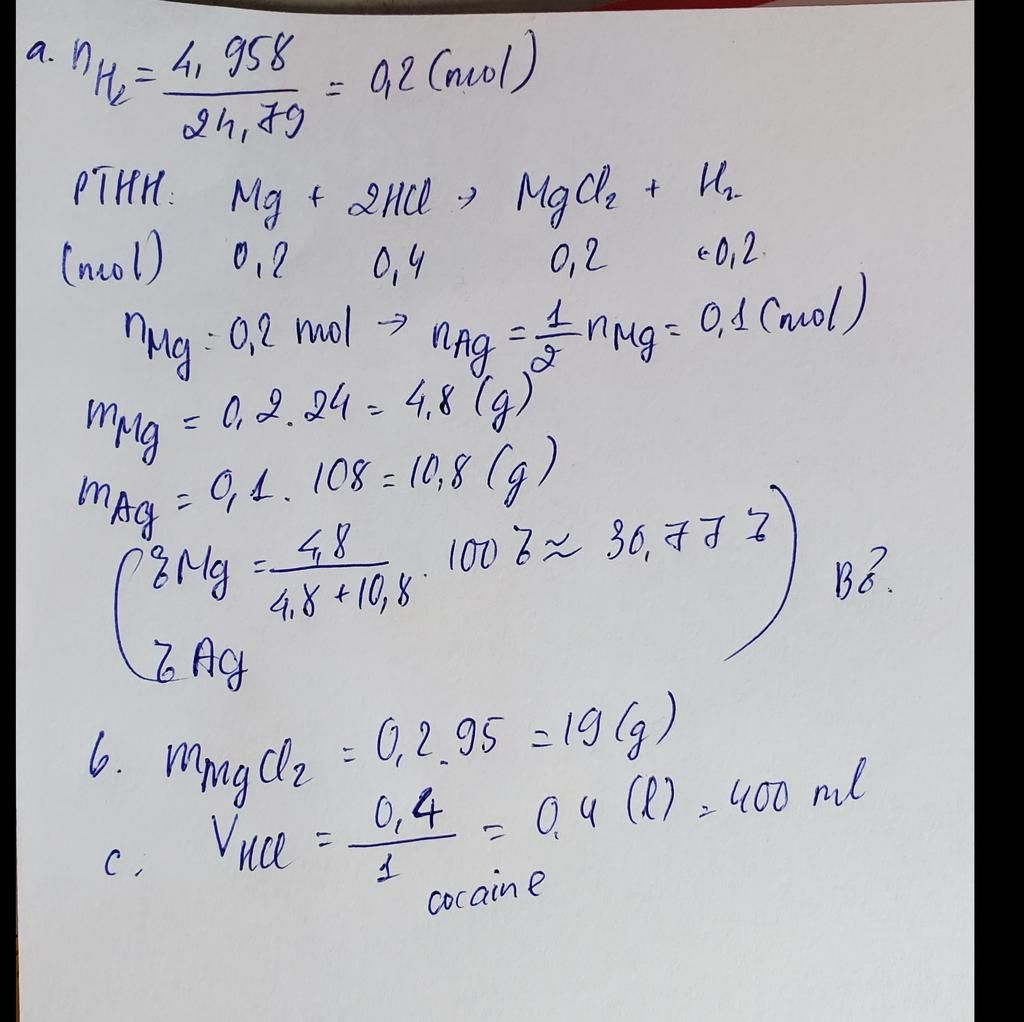 a. n_H₂ = 4,958 / 24,79 = 0,2 (mol)
PTHH: Mg + 2HCl → MgCl₂ + H₂
(mol) 0,2 0,4 0,2 ←0,2
n_Mg = 0,2 mol → n_Ag = 1/2 n_Mg = 0,1 (mol)
m_Mg = 0,2.24 = 4,8 (g)
m_Ag = 0,1.108 = 10,8 (g)
%Mg = 4,8 / 4,8+10,8 . 100% ≈ 30,77%
%Ag
b. m_MgCl₂ = 0,2.95 = 19 (g)
c. V_HCl = 0,4 / 1 = 0,4 (l) = 400 ml
cocaine